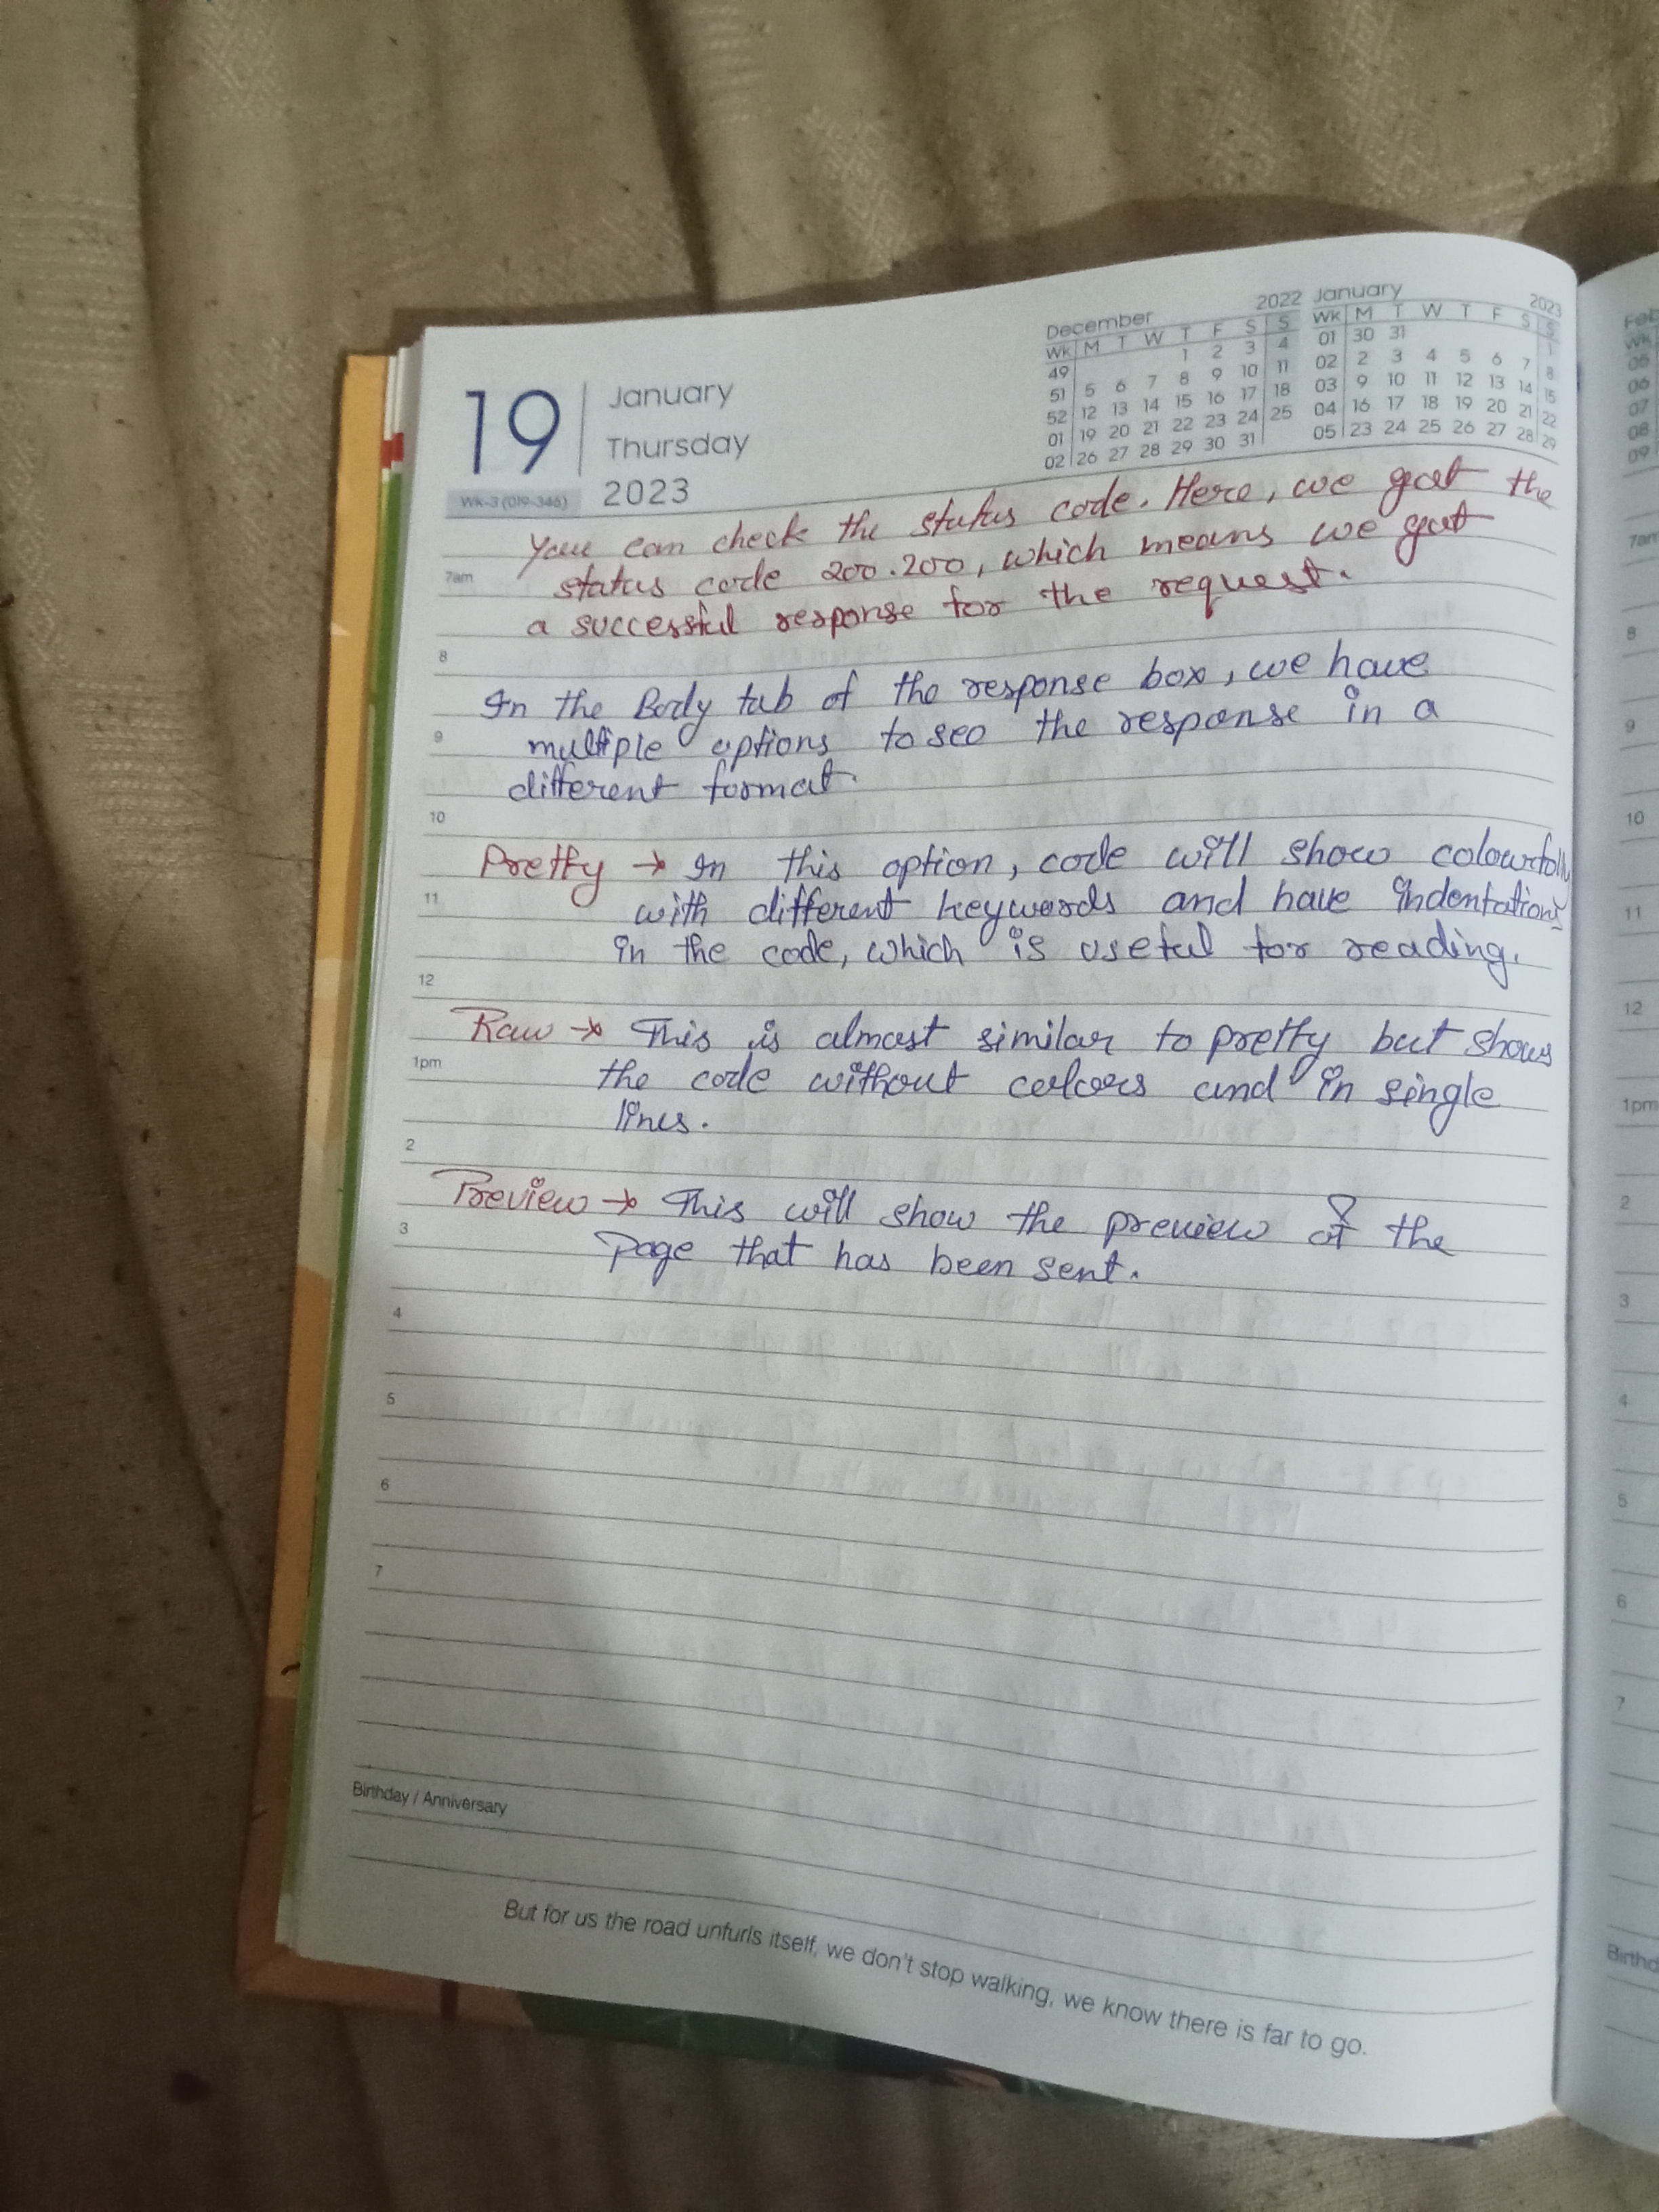 19
January
Thursday
2023
Wk-3 (019-346)
December 2022
Wk M T W T F S S
49 1 2 3 4
51 5 6 7 8 9 10 11
52 12 13 14 15 16 17 18
01 19 20 21 22 23 24 25
02 26 27 28 29 30 31
January 2023
Wk M T W T F S S
01 30 31 1
02 2 3 4 5 6 7 8
03 9 10 11 12 13 14 15
04 16 17 18 19 20 21 22
05 23 24 25 26 27 28 29
You can check the status code. Here, we got the
7am status code 200.200, which means we got
a successful response for the request.
8
In the Body tab of the response box, we have
9 multiple options to see the response in a
different format.
10
Pretty → In this option, code will show
11 with different keywords and have indentations
in the code, which is useful for reading.
12
Raw → This is almost similar to pretty but shows
1pm the code without colors and in single
lines.
2
Preview → This will show the preview of the
3 Page that has been sent.
4
5
6
7
Birthday / Anniversary
But for us the road unfurls itself, we don't stop walking, we know there is far to go.
Feb
Wk
05
06
07
08
09
7am
8
9
10
11
12
1pm
2
3
4
5
6
7
Birthd